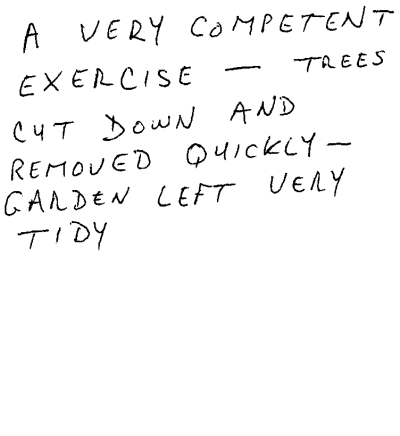 A VERY COMPETENT
EXERCISE — TREES
CUT DOWN AND
REMOVED QUICKLY —
GARDEN LEFT VERY
TIDY